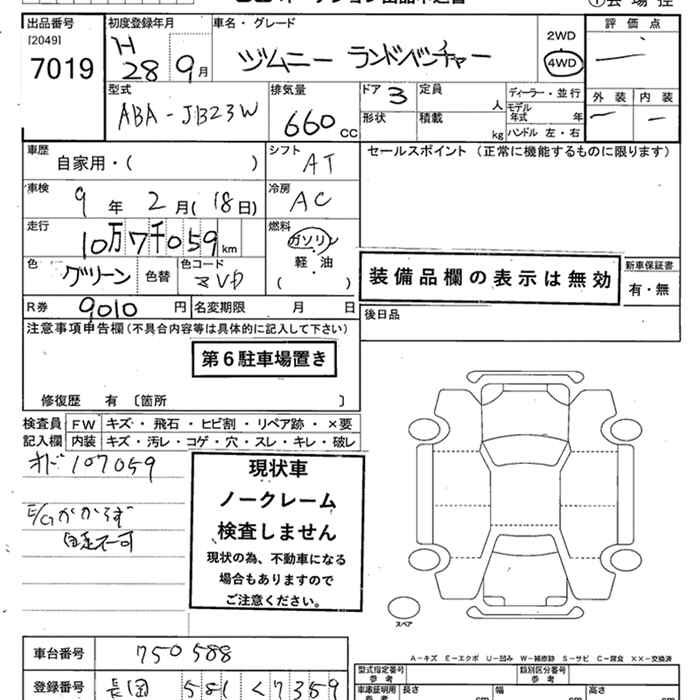 出品番号 初度登録年月 車名・グレード 評価点
[2049] H 2WD
7019 28 9月 ジムニー ランドベンチャー 4WD
外装 内装
型式 排気量 ドア 3 定員 人 ディーラー・並行
ABA-JB23W 660cc 形状 積載 kg モデル年式 年
ハンドル 左・右
車歴 シフト セールスポイント (正常に機能するものに限ります)
自家用・( ) AT
車検 冷房
9年 2月(18日) AC
走行 燃料
10万7千059km ガソリン
軽・油
( )
色 グリーン 色替 色コード
装備品欄の表示は無効
新車保証書
有・無
R券 9010円 名変期限 月 日 後日品
注意事項申告欄(不具合内容等は具体的に記入して下さい)
第6駐車場置き
修復歴 有 〔箇所 〕
検査員 FW キズ・飛石・ヒビ割・リペア跡・×要
記入欄 内装 キズ・汚レ・コゲ・穴・スレ・キレ・破レ
オド 107059
E/Gかからず
自走不可
現状車
ノークレーム
検査しません
現状の為、不動車になる
場合もありますので
ご注意ください。
スペア
A-キズ E-エクボ U-凹み W-補修跡 S-サビ C-腐食 XX-交換済
車台番号 750588
型式指定番号 参考 類別区分番号 参考
登録番号 長岡 581 く7359
車庫証明用 参考 長さ cm 幅 cm 高さ cm